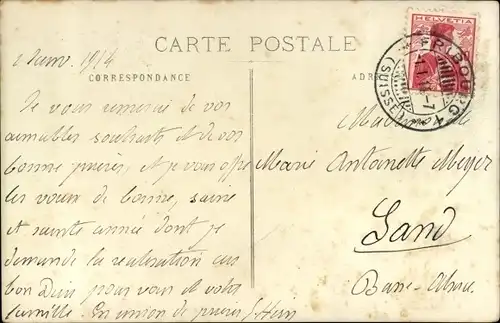 2 Janv. 1914
CARTE POSTALE
CORRESPONDANCE
HELVETIA
FRIBOURG
(SUISSE)
Je vous remercie de vos
aimables souhaits et de vos
bonne prières, et je vous offre
les voeux de bonne, saine
et sainte année dont je
demande la réalisation au
bon Dieu pour vous et votre
famille. En union de prières
Marie Antoinette Meyer
Sand
Basse-Alsace